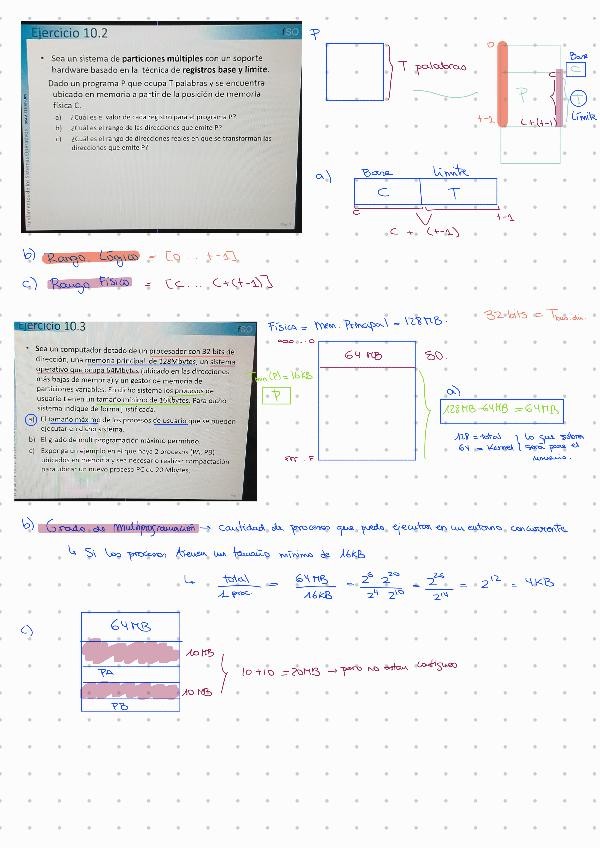 Ejercicio 10.2
• Sea un sistema de particiones múltiples con un soporte
hardware basado en la técnica de registros base y límite.
Dado un programa P que ocupa T palabras y se encuentra
ubicado en memoria a partir de la posición de memoria
física C.
a) ¿Cuál es el valor de cada registro para el programa P?
b) ¿Cuál es el rango de las direcciones que emite P?
c) ¿Cuál es el rango de direcciones reales en que se transforman las
direcciones que emite P?
P
T palabras
0
P
t-1
C
C+(t-1)
Base
C
T
Límite
a)
Base Límite
C T
C
t-1
C + (t-1)
b) Rango Lógico = [0 .. t-1]
c) Rango Físico = [C ... C+(t-1)]
Ejercicio 10.3
• Sea un computador dotado de un procesador con 32 bits de
dirección, una memoria principal de 128Mbytes, un sistema
operativo que ocupa 64Mbytes (ubicado en las direcciones
más bajas de memoria) y un gestor de memoria de
particiones variables. En dicho sistema los procesos de
usuario tienen un tamaño mínimo de 16Kbytes. Para dicho
sistema indique de forma justificada.
a) El tamaño máximo de los procesos de usuario que se pueden
ejecutar en dicho sistema.
b) El grado de multiprogramación máximo permitido.
c) Exponga un ejemplo en el que haya 2 procesos (PA, PB)
ubicados en memoria y sea necesario realizar compactación
para ubicar un nuevo proceso PC de 20 Mbytes.
Física = Mem. Principal = 128MB.
32 bits =
(P) = 16KB
P
64 MB
SO.
a)
128MB-64MB = 64MB
128 = total
64 = Kernel
lo que sobra
será para el
usuario.
b) Grado de Multiprogramación → Cantidad de procesos que puedo ejecutar en un entorno concurrente
↳ Si los procesos tienen un tamaño mínimo de 16KB
↳ total / 1 proc. = 64MB / 16KB = 2⁶ 2²⁰ / 2⁴ 2¹⁰ = 2²⁶ / 2¹⁴ = 2¹² = 4KB
c)
64MB
10MB
PA
10MB
PB
10+10 = 20MB → pero no están contiguos